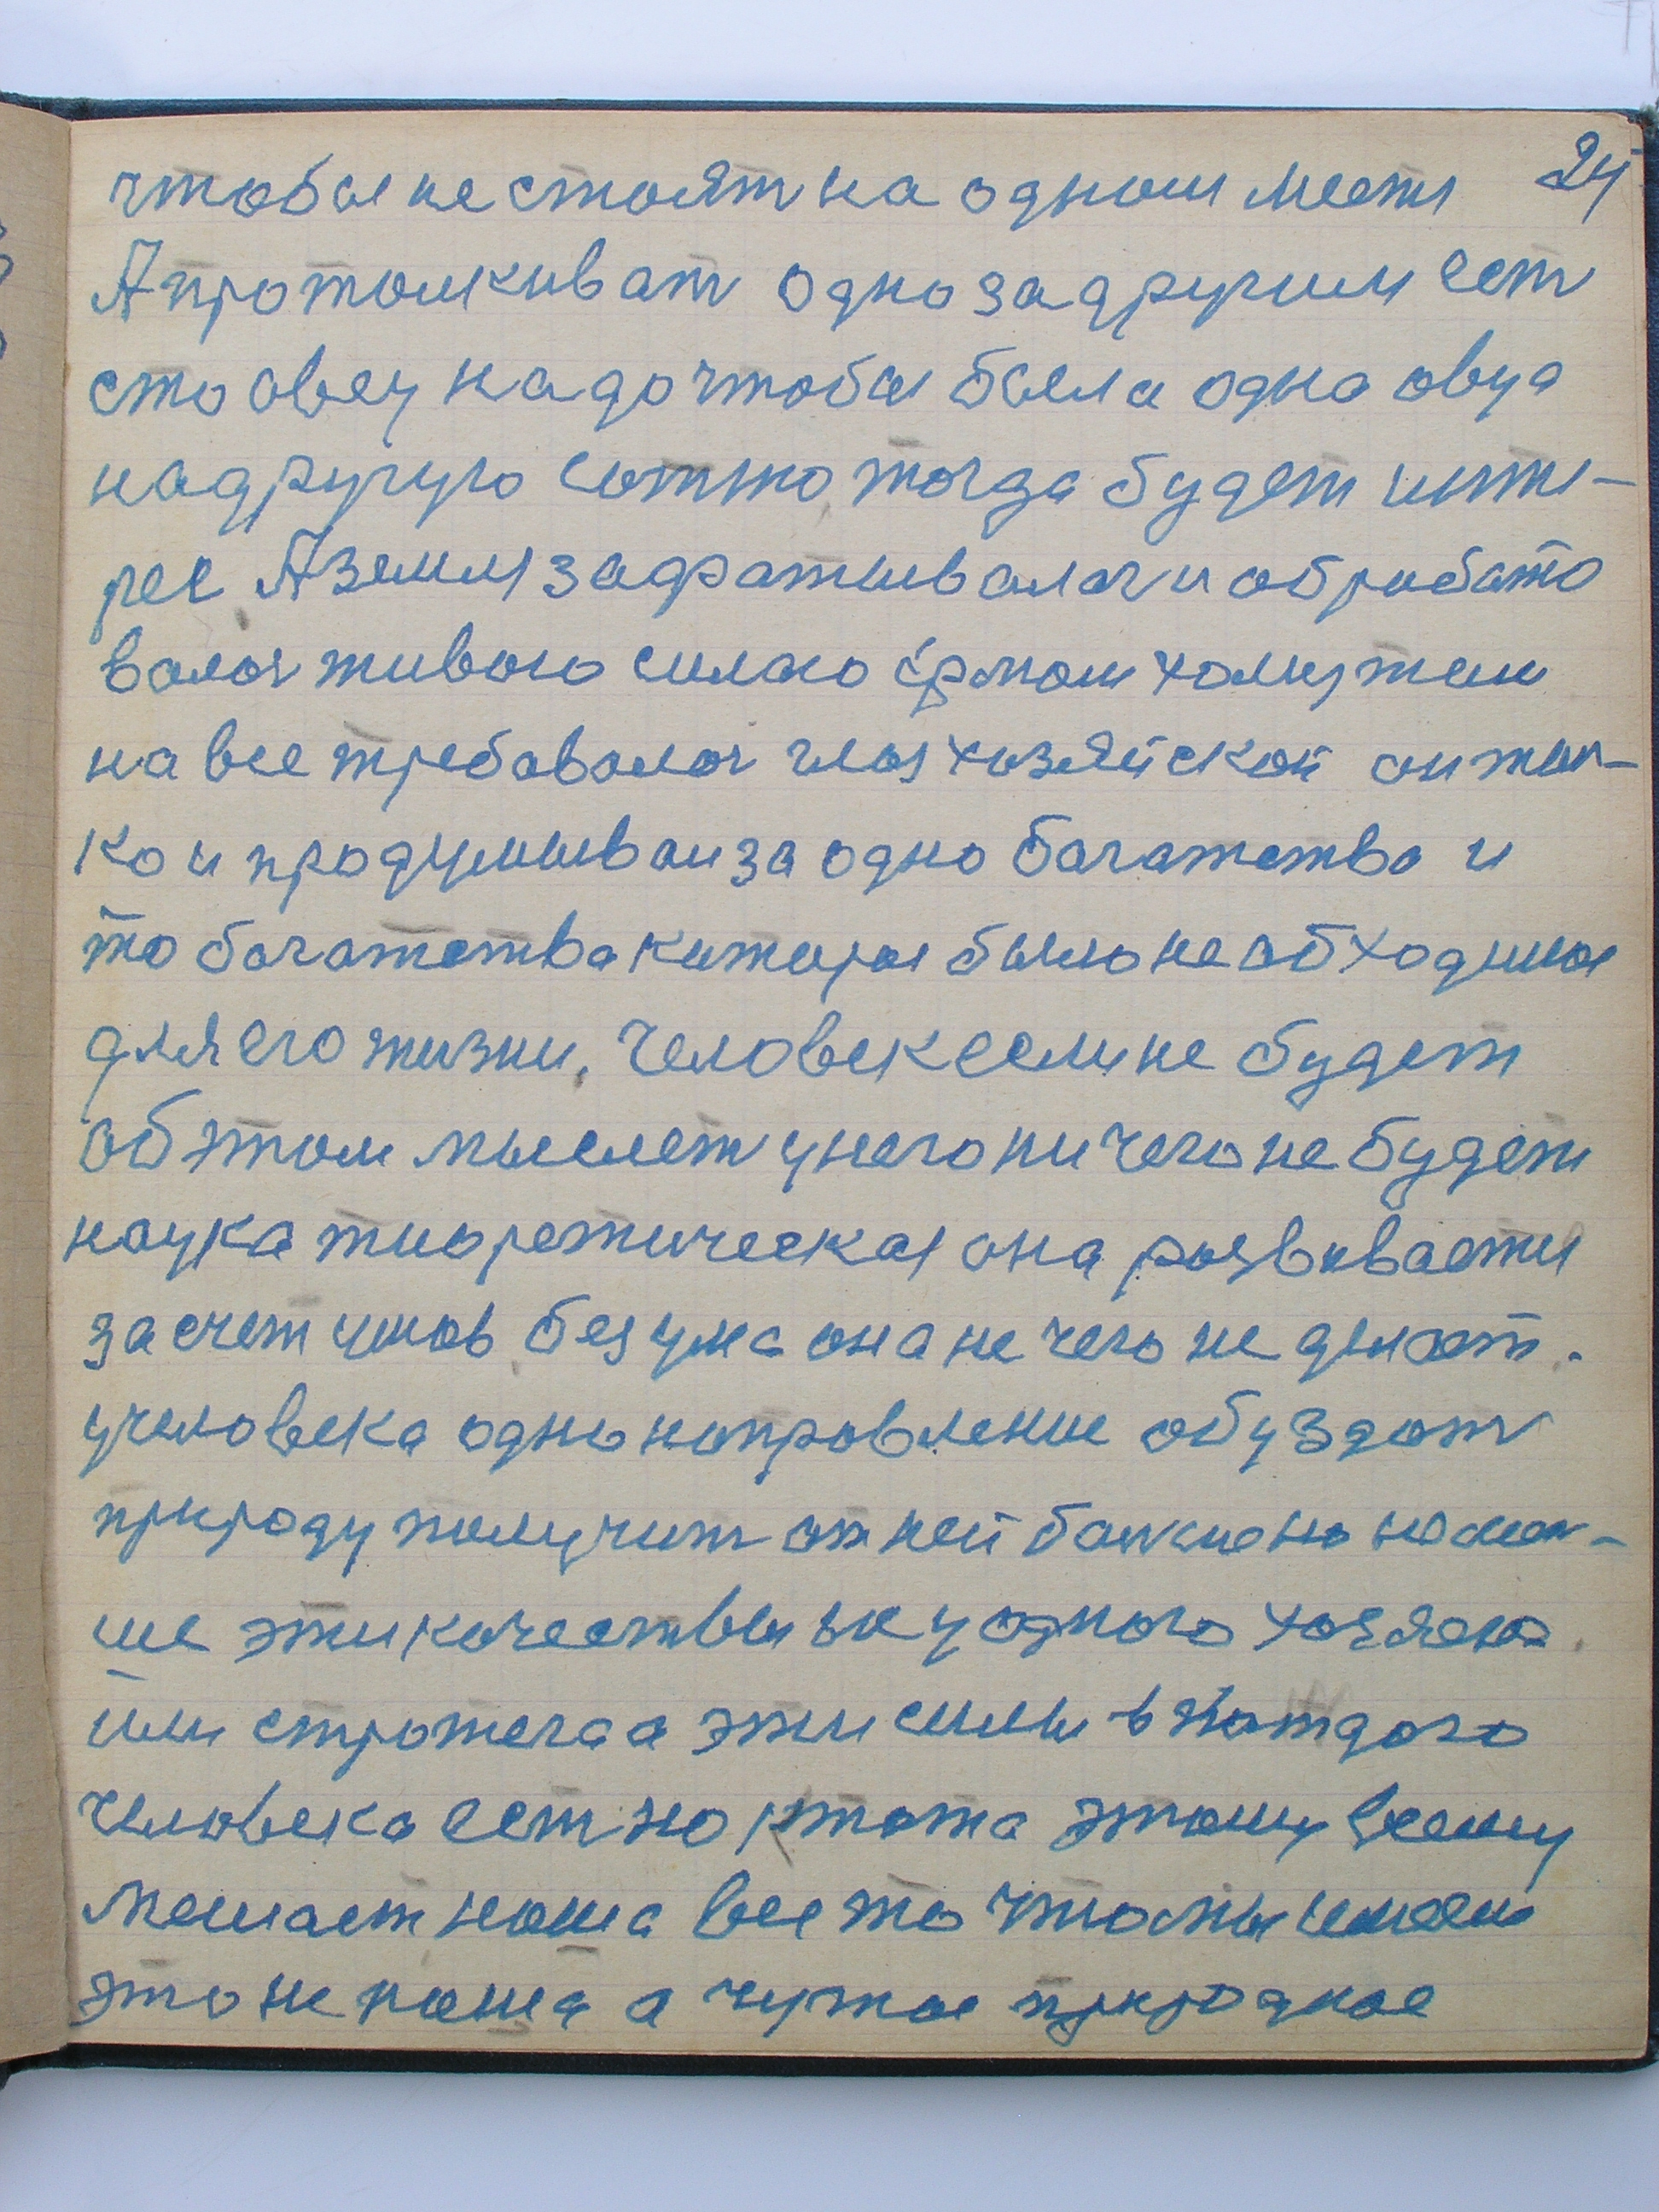 24
чтобы не стоят на одном мести
А протолкиват одно за другим ест
сто овец надо чтобы была одна овца
на другую сотню, тогда будет инти-
рес А земля зафатывалас и обработо
валос живою силою ёрмом хомутам
на все требавалос глаз хозяйской он тол-
ко и продумывал за одно багатство и
то багатства каторое было необходимое
для его жизни. Человек если не будет
об этом мыслет у него ничего не будет
наука тиоретическая она развивается
за счет умов без ума она не чего не делает.
у человека одно направление обуздат
природу получит от ней болше но не мен-
ше эти качествы не у одного хозяена
или стротега а эти силы в каждого
человека ест но ктота этому всему
мешает наша все то что мы имеем
это не наша а чужое природное